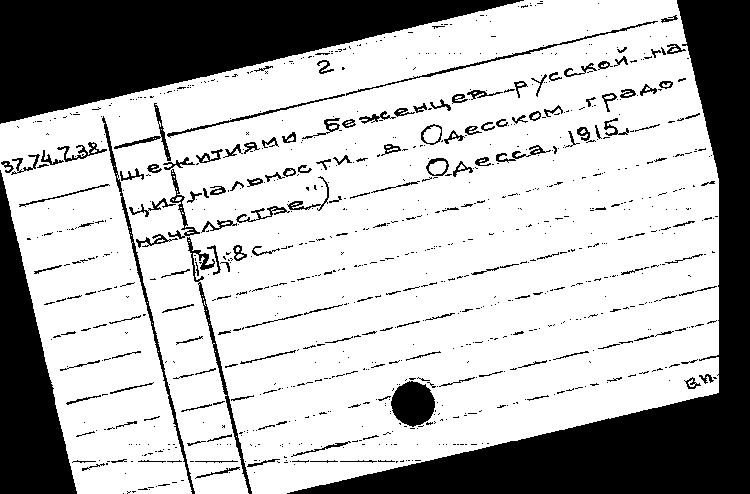 2.
37.74.7.38
щежитиями беженцев русской на-
циональности в Одесском градо-
начальстве"). Одесса, 1915.
[2], 8 с
вп.